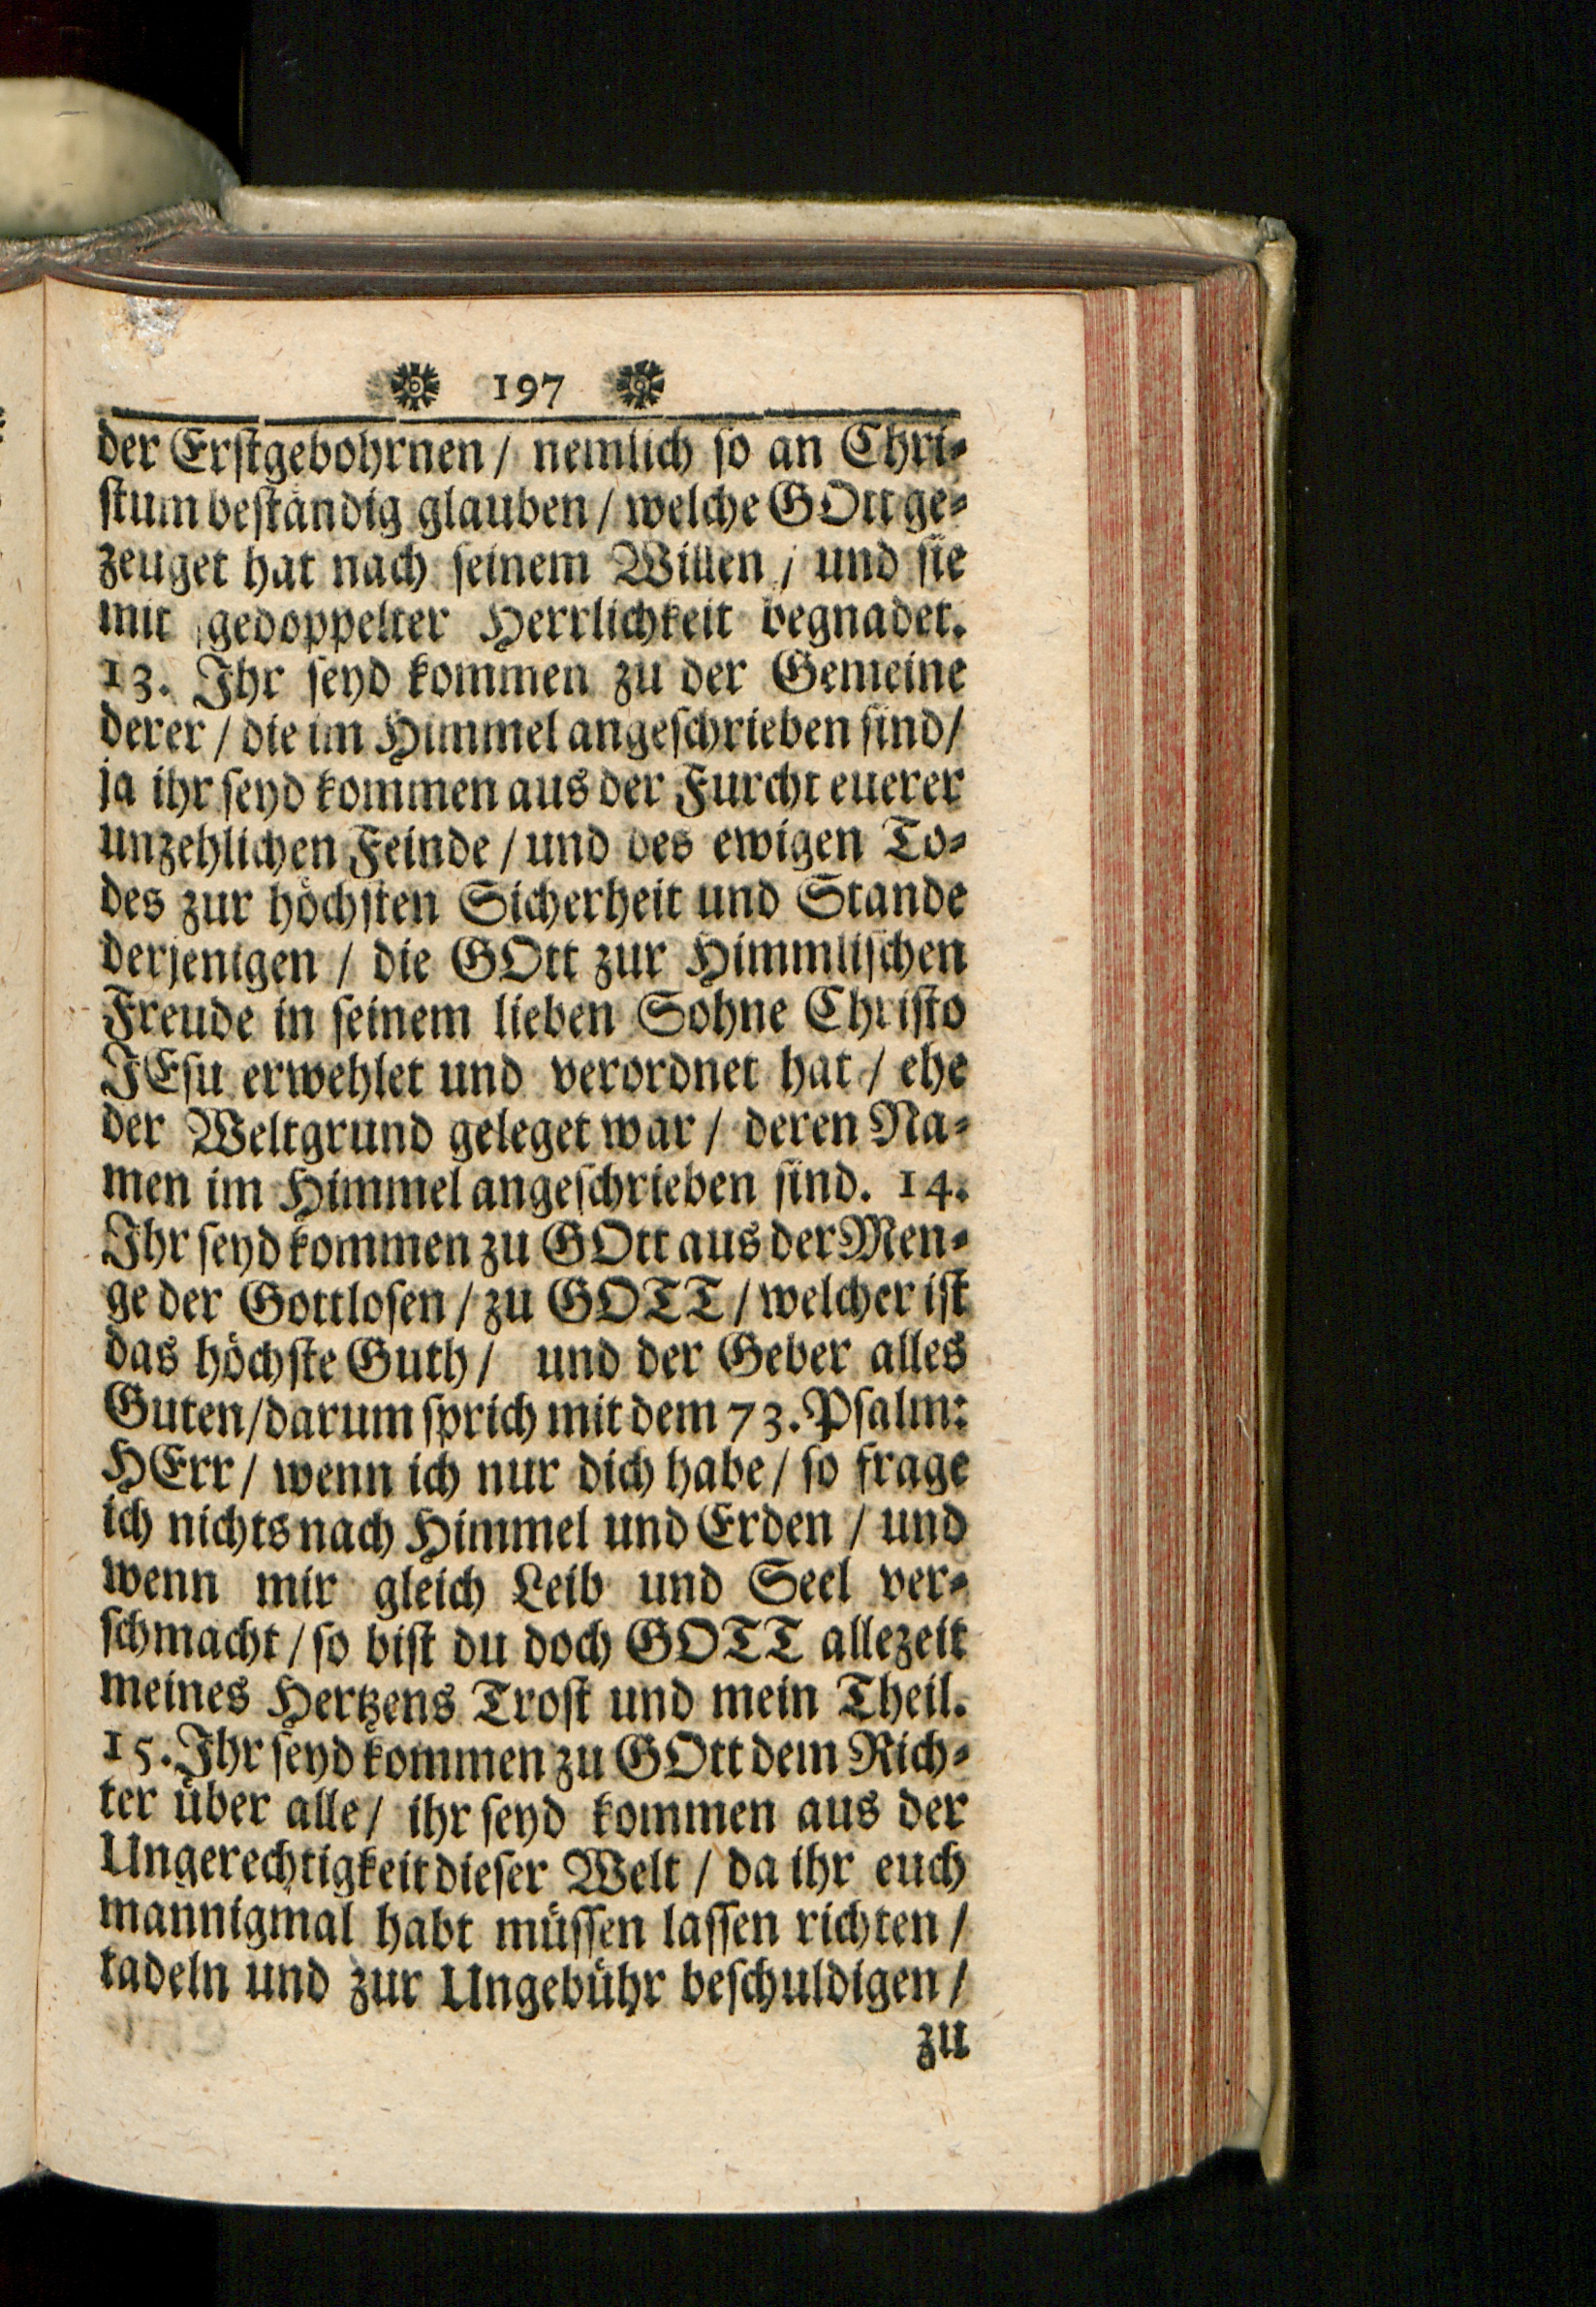 197
der Erstgebohrnen / nemlich so an Chri-
stum beständig glauben / welche GOtt ge-
zeuget hat nach seinem Willen / und sie
mit gedoppelter Herrlichkeit begnadet.
13. Ihr seyd kommen zu der Gemeine
derer / die im Himmel angeschrieben sind /
ja ihr seyd kommen aus der Furcht euerer
unzehlichen Feinde / und des ewigen To-
des zur höchsten Sicherheit und Stande
derjenigen / die GOtt zur Himmlischen
Freude in seinem lieben Sohne Christo
JEsu erwehlet und verordnet hat / ehe
der Weltgrund geleget war / deren Na-
men im Himmel angeschrieben sind. 14.
Ihr seyd kommen zu GOtt aus der Men-
ge der Gottlosen / zu GOTT / welcher ist
das höchste Guth / und der Geber alles
Guten / darum sprich mit dem 73. Psalm:
HErr / wenn ich nur dich habe / so frage
ich nichts nach Himmel und Erden / und
wenn mir gleich Leib und Seel ver-
schmacht / so bist du doch GOTT allezeit
meines Hertzens Trost und mein Theil.
15. Ihr seyd kommen zu GOtt dem Rich-
ter über alle / ihr seyd kommen aus der
Ungerechtigkeit dieser Welt / da ihr euch
mannigmal habt müssen lassen richten /
tadeln und zur Ungebühr beschuldigen /
zu